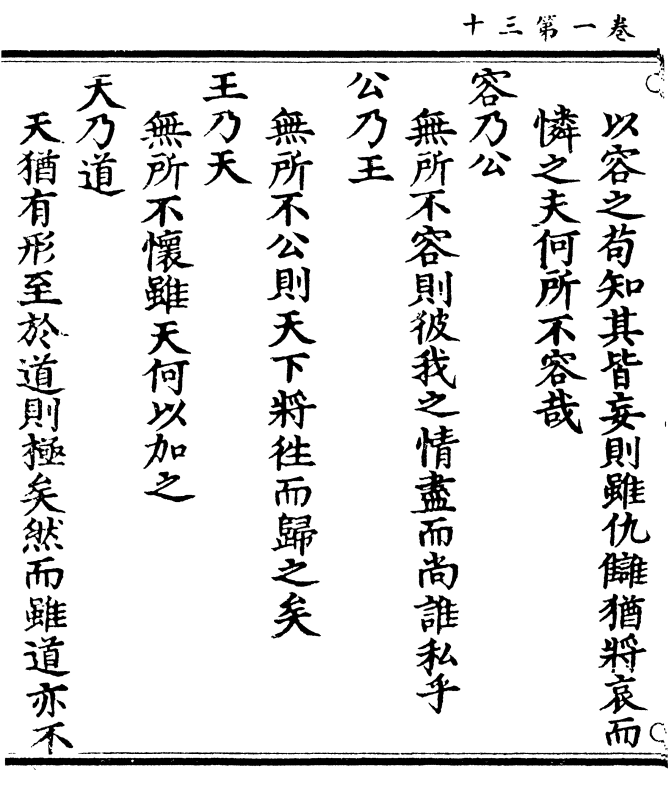 十三第一卷
以容之苟知其皆妄則雖仇讎猶將哀而
憐之夫何所不容哉
容乃公
無所不容則彼我之情盡而尚誰私乎
公乃王
無所不公則天下將徃而歸之矣
王乃天
無所不懷雖天何以加之
天乃道
天猶有形至於道則極矣然而雖道亦不